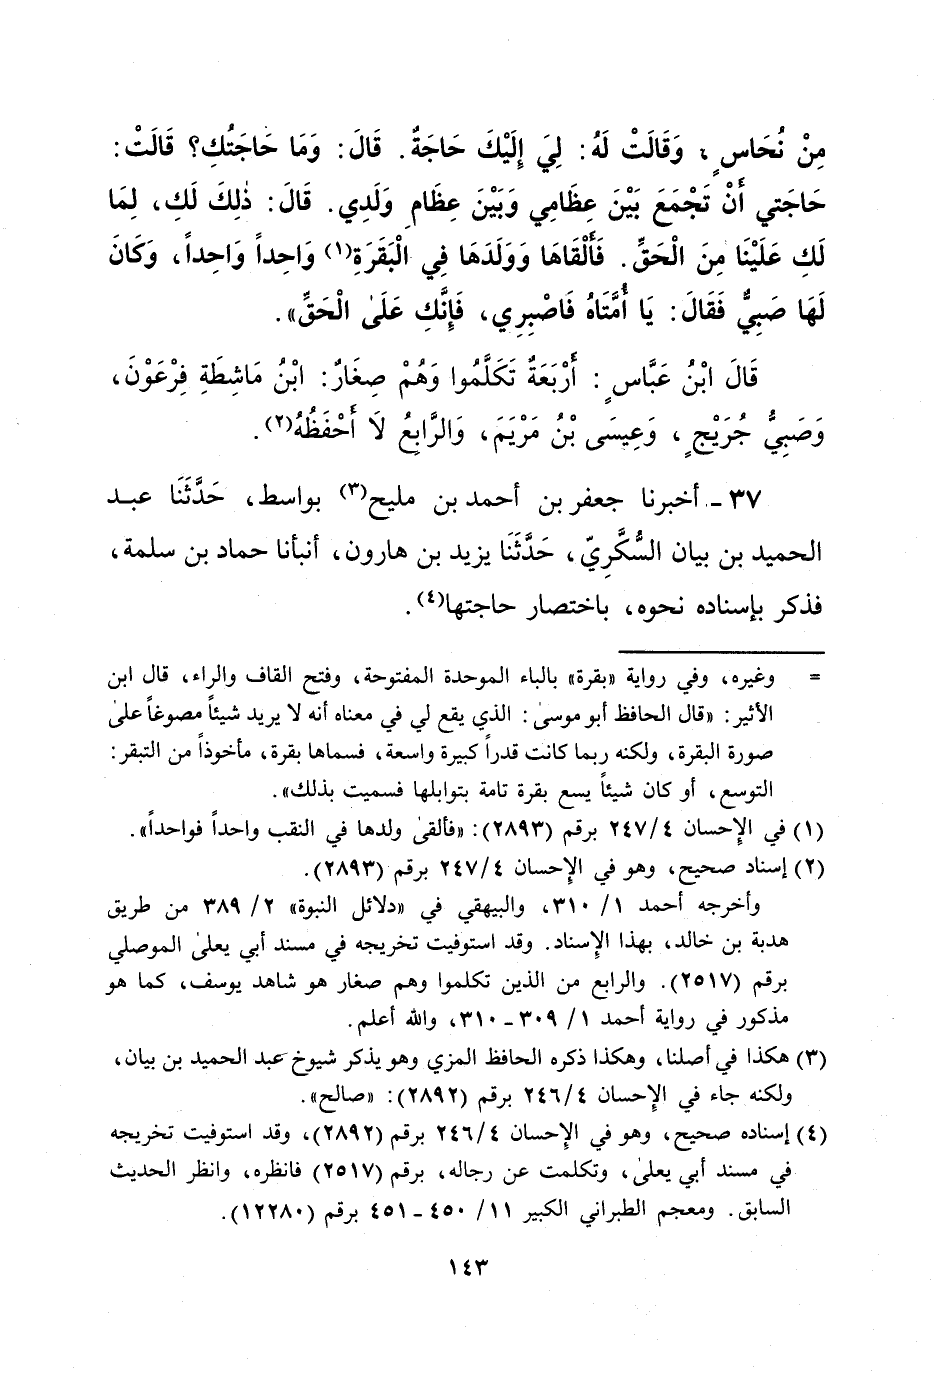 مِنْ نُحَاسٍ، وَقَالَتْ لَهُ: لِيَ إِلَيْكَ حَاجَةٌ. قَالَ: وَمَا حَاجَتُكِ؟ قَالَتْ:
حَاجَتي أَنْ تَجْمَعَ بَيْنَ عِظَامِي وَبَيْنَ عِظَامِ وَلَدِي. قَالَ: ذٰلِكَ لَكِ، لِمَا
لَكِ عَلَيْنَا مِنَ الْحَقِّ. فَأَلْقَاهَا وَوَلَدَهَا فِي الْبَقَرَةِ(١) وَاحِداً وَاحِداً، وَكَانَ
لَهَا صَبِيٌّ فَقَالَ: يَا أُمَّتَاهُ فَاصْبِرِي، فَإِنَّكِ عَلَىٰ الْحَقِّ».
قَالَ ابْنُ عَبَّاسٍ: أَرْبَعَةٌ تَكَلَّمُوا وَهُمْ صِغَارٌ: ابْنُ مَاشِطَةِ فِرْعَوْنَ،
وَصَبِيُّ جُرَيْجٍ، وَعِيسَى بْنُ مَرْيَمَ، وَالرَّابِعُ لاَ أَحْفَظُهُ(٢).
٣٧ - أخبرنا جعفر بن أحمد بن مليح(٣) بواسط، حَدَّثَنَا عبد
الحميد بن بيان السُّكَّرِيّ، حَدَّثَنَا يزيد بن هارون، أنبأنا حماد بن سلمة،
فذكر بإسناده نحوه، باختصار حاجتها(٤).
= وغيره، وفي رواية «بقرة» بالباء الموحدة المفتوحة، وفتح القاف والراء، قال ابن
الأثير: «قال الحافظ أبو موسىٰ: الذي يقع لي في معناه أنه لا يريد شيئاً مصوغاً علىٰ
صورة البقرة، ولكنه ربما كانت قدراً كبيرة واسعة، فسماها بقرة، مأخوذاً من التبقر:
التوسع، أو كان شيئاً يسع بقرة تامة بتوابلها فسميت بذلك».
(١) في الإحسان ٢٤٧/٤ برقم (٢٨٩٣): «فألقىٰ ولدها في النقب واحداً فواحداً».
(٢) إسناد صحيح، وهو في الإحسان ٢٤٧/٤ برقم (٢٨٩٣).
وأخرجه أحمد ١/ ٣١٠، والبيهقي في «دلائل النبوة» ٢/ ٣٨٩ من طريق
هدبة بن خالد، بهذا الإسناد. وقد استوفيت تخريجه في مسند أبي يعلىٰ الموصلي
برقم (٢٥١٧). والرابع من الذين تكلموا وهم صغار هو شاهد يوسف، كما هو
مذكور في رواية أحمد ١/ ٣٠٩ - ٣١٠، والله أعلم.
(٣) هكذا في أصلنا، وهكذا ذكره الحافظ المزي وهو يذكر شيوخ عبد الحميد بن بيان،
ولكنه جاء في الإحسان ٢٤٦/٤ برقم (٢٨٩٢): «صالح».
(٤) إسناده صحيح، وهو في الإحسان ٢٤٦/٤ برقم (٢٨٩٢)، وقد استوفيت تخريجه
في مسند أبي يعلىٰ، وتكلمت عن رجاله، برقم (٢٥١٧) فانظره، وانظر الحديث
السابق. ومعجم الطبراني الكبير ١١/ ٤٥٠ - ٤٥١ برقم (١٢٢٨٠).
١٤٣